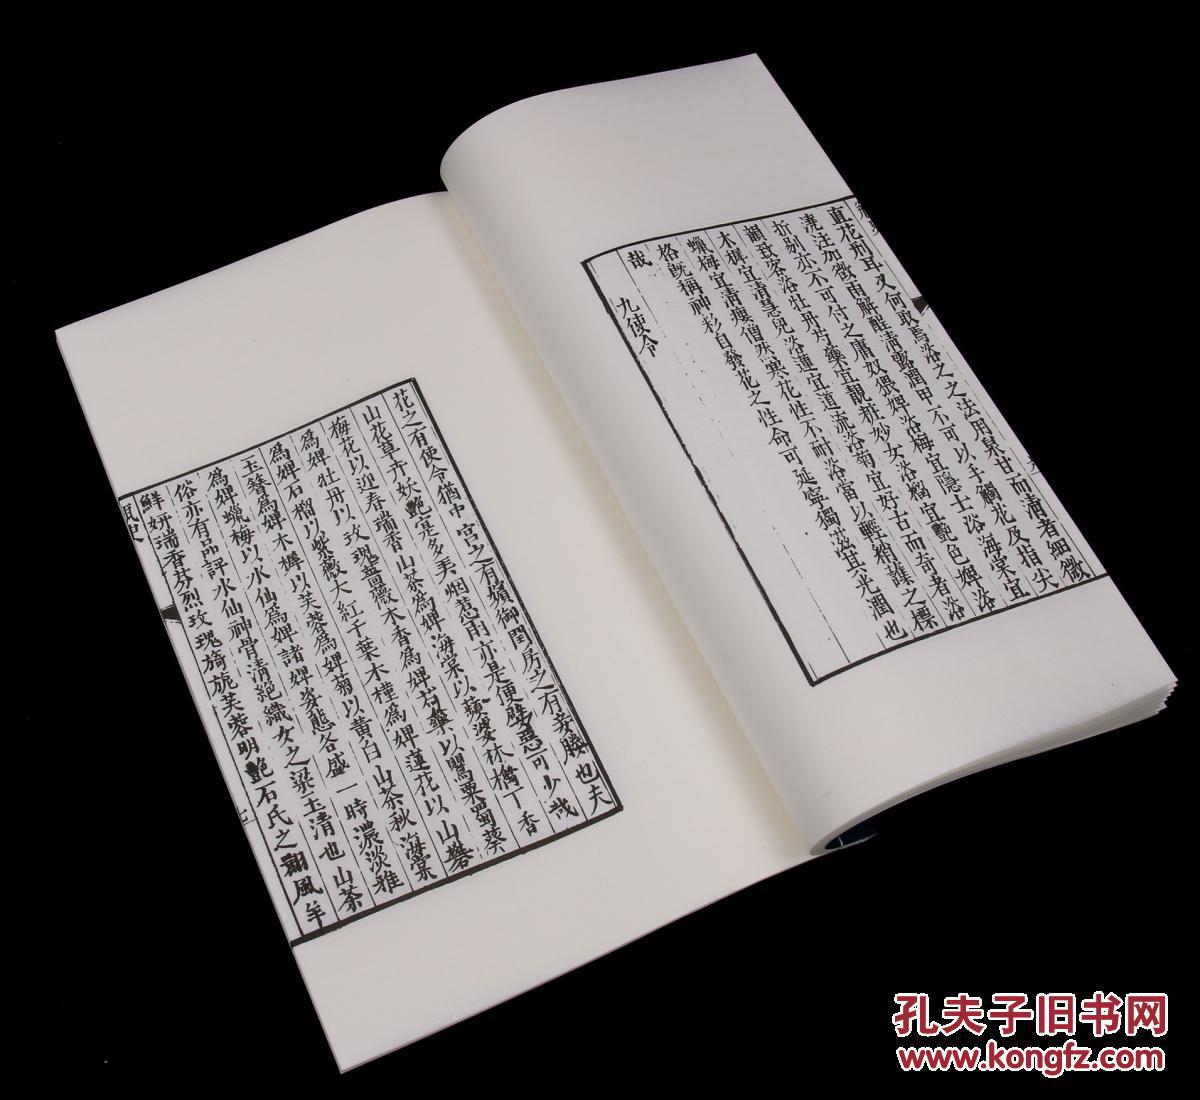 直花刑耳又何取焉浴之之法用泉甘而清者細微
澆注加微雨解酲清露潤甲不可以手觸花及指尖
折剔亦不可付之庸奴猥婢浴梅宜隱士浴海棠宜
韻致客浴牡丹芍藥宜靚粧妙女浴榴宜艷色婢浴
木樨宜清慧兒浴蓮宜道流浴菊宜好古而奇者浴
蠟梅宜清瘦僧然寒花性不耐浴當以輕綃護之標
格既稱神彩自發花之性命可延寧獨滋其光潤也
哉
九使令
花之有使令猶中宮之有嬪御閨房之有妾媵也夫
山花草卉妖艷寔多弄烟惹雨亦是便嬖惡可少哉
梅花以迎春瑞香山茶為婢海棠以蘋婆林檎丁香
為婢牡丹以玫瑰薔薇木香為婢芍藥以罌粟蜀葵
為婢石榴以紫薇大紅千葉木槿為婢蓮花以山礬
玉簪為婢木樨以芙蓉為婢菊以黃白山茶秋海棠
為婢蠟梅以水仙為婢諸婢姿態各盛一時濃淡雅
俗亦有品評水仙神骨清絕織女之梁玉清也山茶
鮮妍瑞香芬烈玫瑰旖旎芙蓉明艷石氏之翾風羊
七
孔夫子旧书网
www.kongfz.com